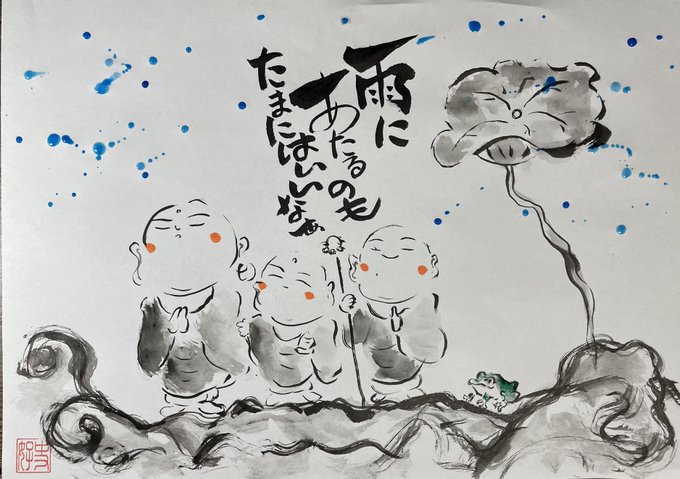 雨に
あたるのも
たまにはいいなぁ